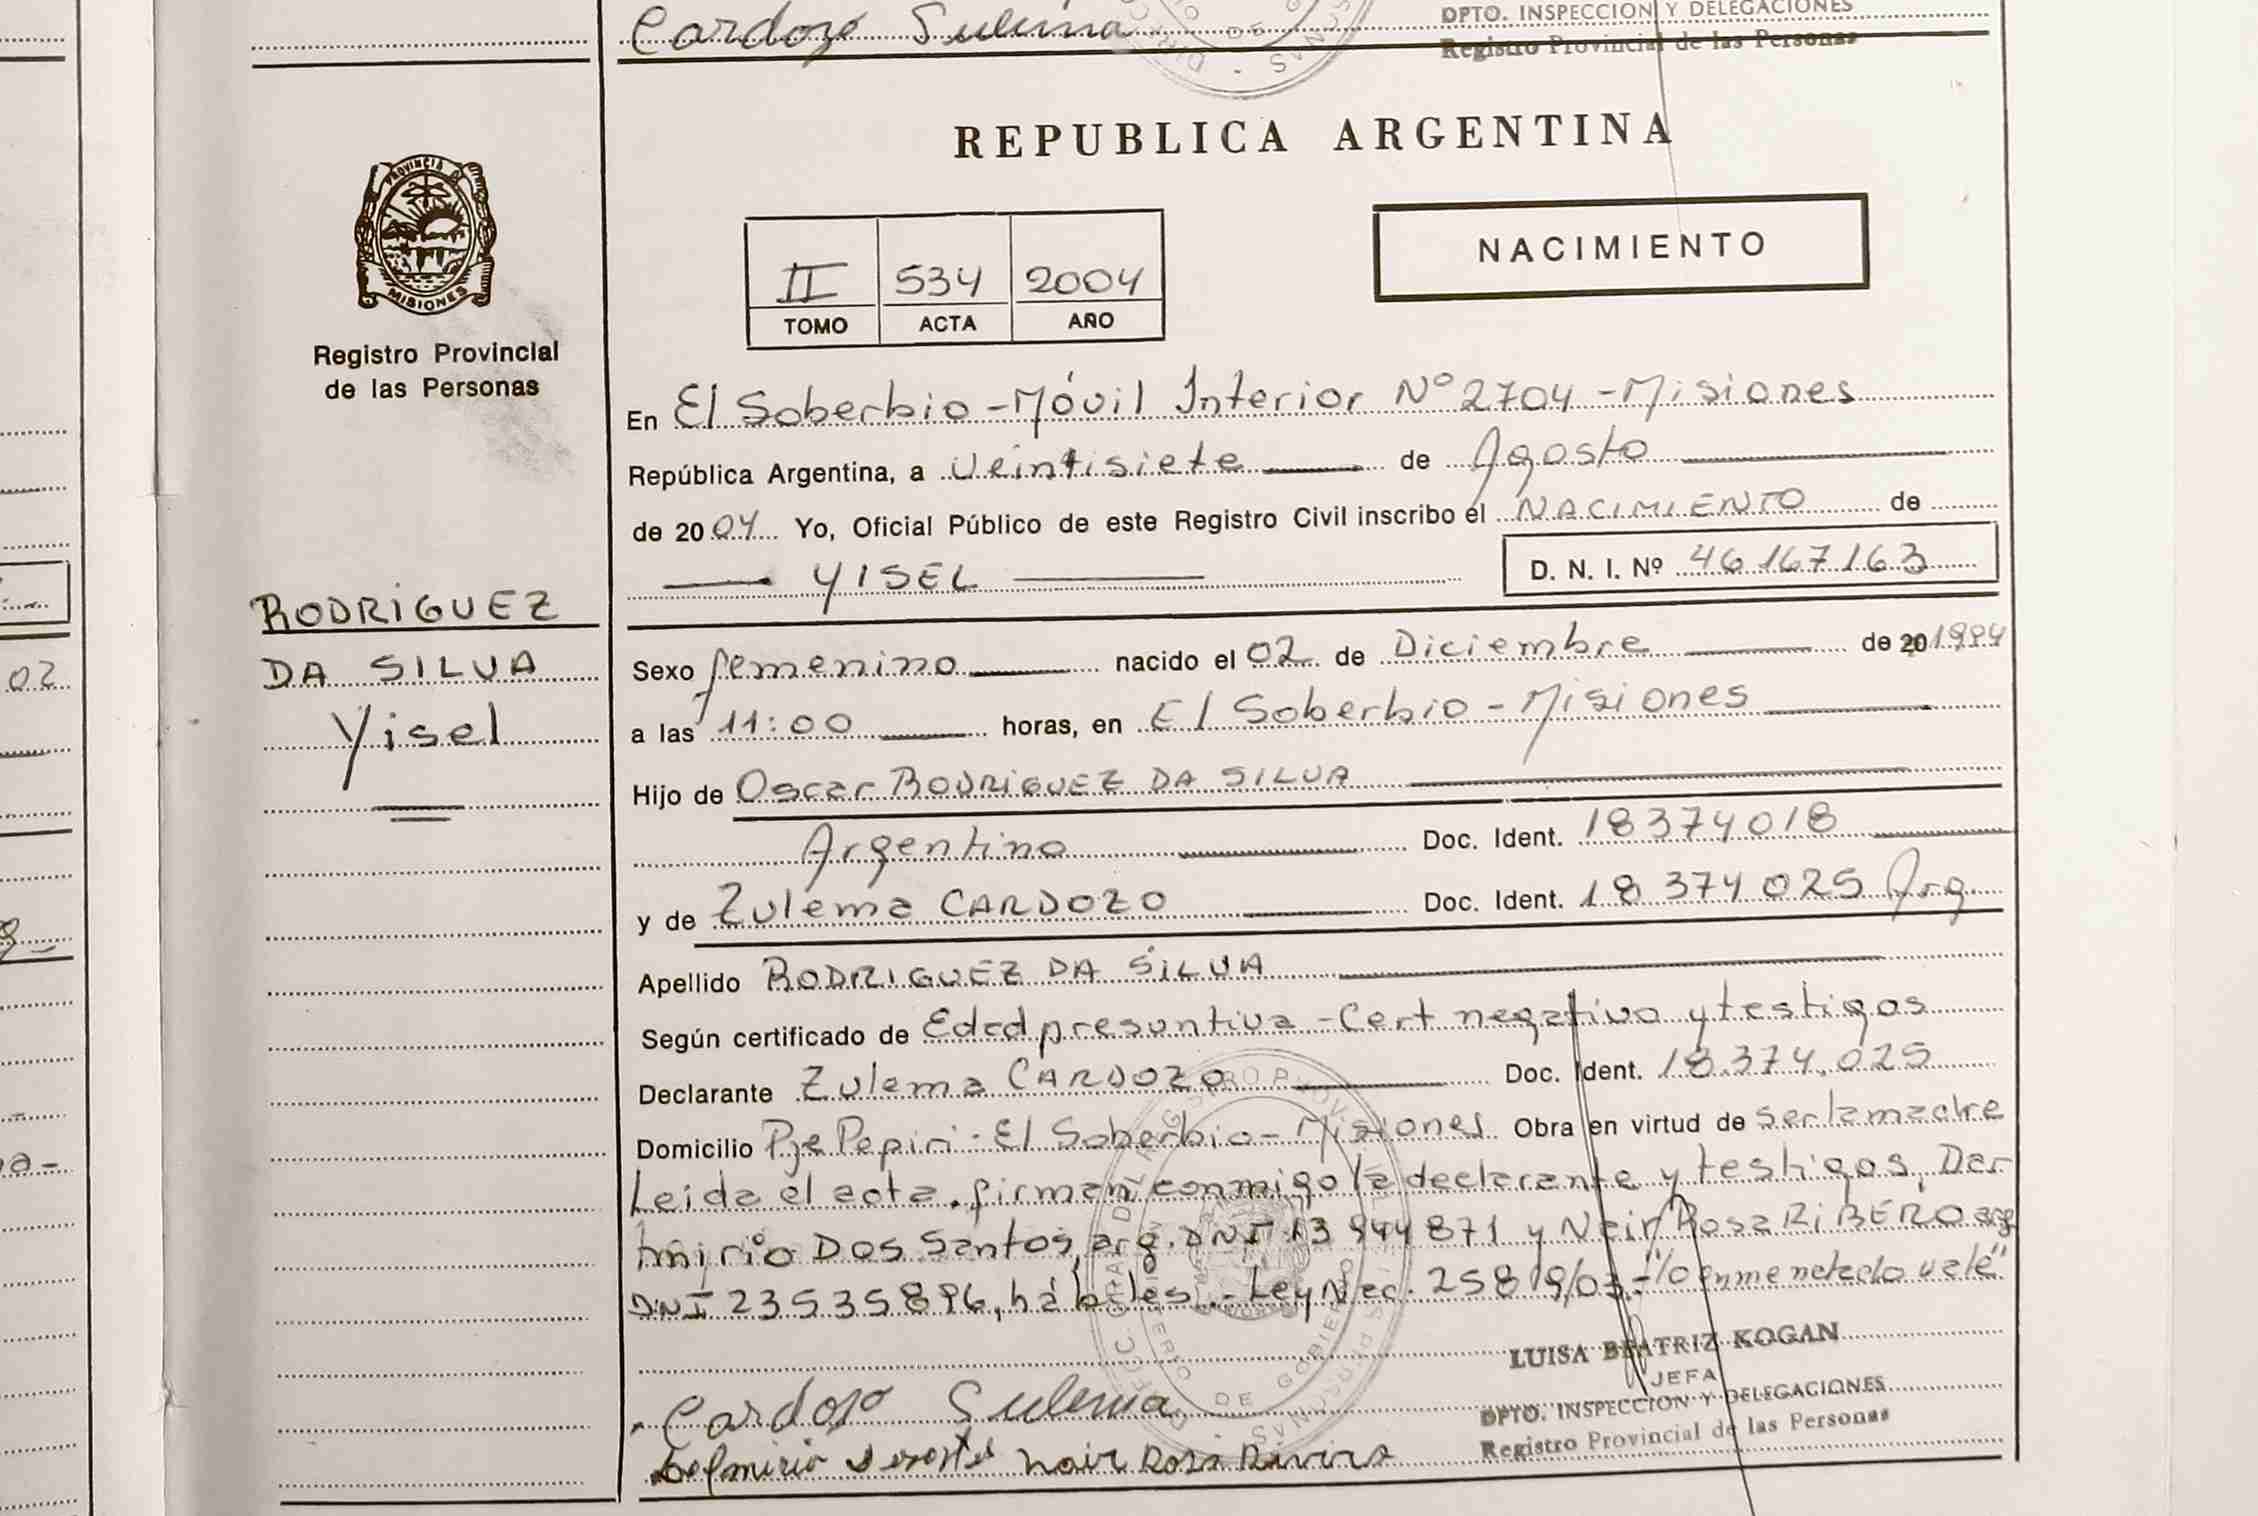 Cardozo Sulema
DPTO. INSPECCION Y DELEGACIONES
Registro Provincial de las Personas
REPUBLICA ARGENTINA
PROVINCIA D
MISIONES
NACIMIENTO
II 534 2004
TOMO ACTA AÑO
Registro Provincial
de las Personas
En El Soberbio - Móvil Interior Nº 2704 - Misiones
República Argentina, a Veintisiete de Agosto
de 2004 Yo, Oficial Público de este Registro Civil inscribo el NACIMIENTO de
YISEL D. N. I. Nº 46.167.163
RODRIGUEZ
DA SILVA
Yisel
02
Sexo femenino nacido el 02 de Diciembre de 20 1994
a las 11:00 horas, en El Soberbio - Misiones
Hijo de Oscar RODRIGUEZ DA SILVA
Argentino Doc. Ident. 18374018
y de Zulema CARDOZO Doc. Ident. 18.374.025 Arg.
Apellido RODRIGUEZ DA SILVA
Según certificado de Edad presuntiva - Cert negativo y testigos
Declarante Zulema CARDOZO Doc. Ident. 18.374.025
Domicilio Pje Pepiri - El Soberbio - Misiones Obra en virtud de ser la madre
Leida el acta, firman conmigo la declarante y testigos, Der
Dos Santos, arg. DNI 13 944 871 y Neir Rosa RIBERO arg
DNI 23535896, hábiles.- Ley Nac. 25819/03.- "/o enmendado vale"
LUISA BEATRIZ KOGAN
JEFA
DPTO. INSPECCION Y DELEGACIONES
Registro Provincial de las Personas
Cardozo Sulema
Nair Rosa Rivira